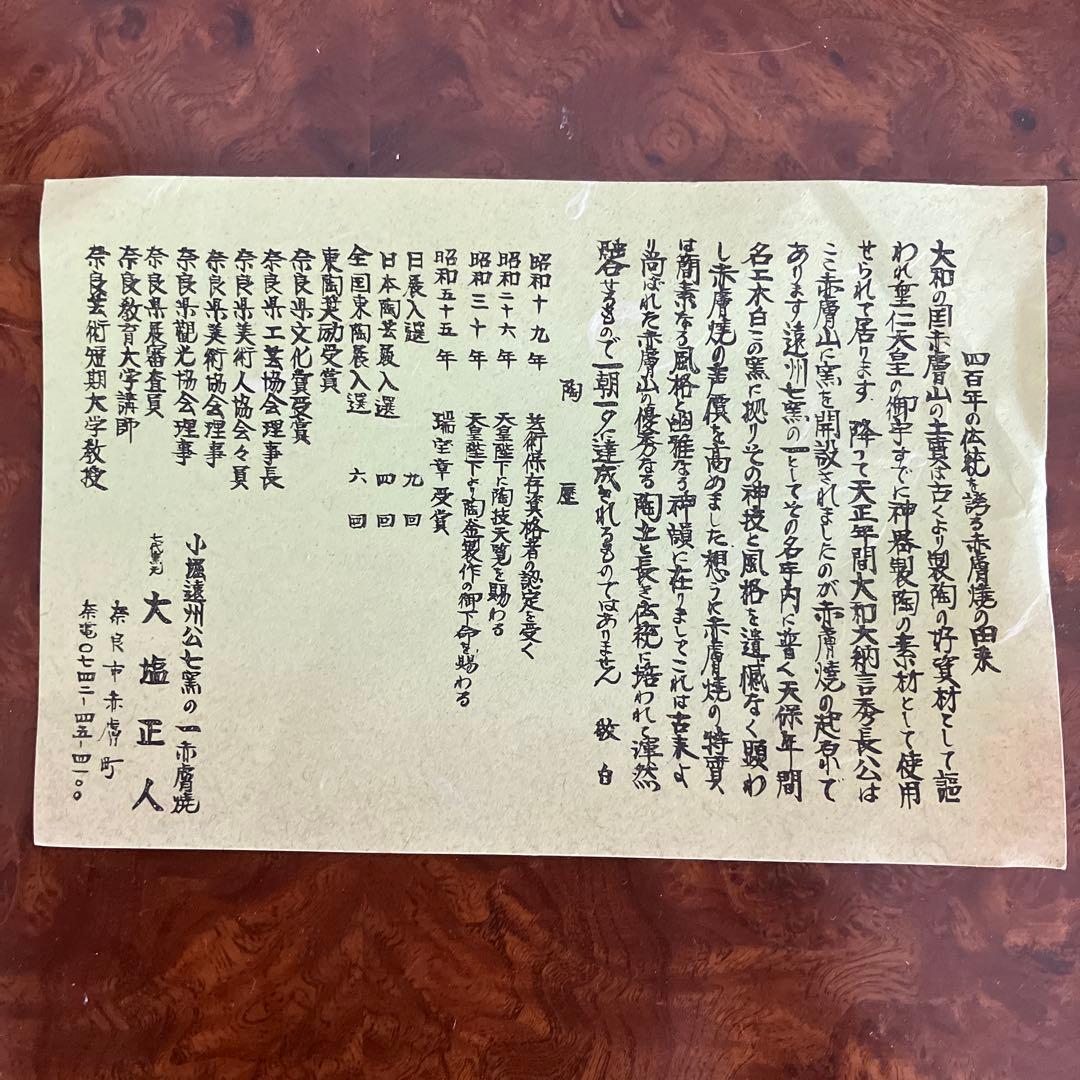 四百年の伝統を誇る赤膚焼の由来
大和の国赤膚山の土質は古くより製陶の好資材として謳
われ垂仁天皇の御宇すでに神器製陶の素材として使用
せられて居ります 降って天正年間大和大納言秀長公は
ここ赤膚山に窯を開設されましたのが赤膚焼の起原で
あります遠州七窯の一としてその名宇内に普く天保年間
名工木白この窯に拠りその神技と風格を遺憾なく顕わ
し赤膚焼の声價を高めました想うに赤膚焼の特質
は簡素なる風格と幽雅なる神韻に在りましてこれは古来よ
り尚ばれた赤膚山の優秀なる陶土と長き伝統に培われ渾然
融合せるもので一朝一夕に達成されるものではありません 敬白
陶歴
昭和十九年 芸術保存資格者の認定を受く
昭和二十六年 天皇陛下に陶技天覧を賜わる
昭和三十年 天皇陛下より陶釜製作の御下命を賜わる
昭和五十五年 瑞宝章受賞
日展入選 九回
日本陶芸展入選 四回
全国東陶展入選 六回
東陶奨励受賞
奈良県文化賞受賞
奈良県工芸協会理事長
奈良県美術人協会々員
奈良県美術協会理事
奈良県観光協会理事
奈良県展審査員
奈良教育大学講師
奈良芸術短期大学教授
小堀遠州公七窯の一赤膚焼
七代窯元 大塩正人
奈良市赤膚町
奈電〇七四二-四五-四一〇〇